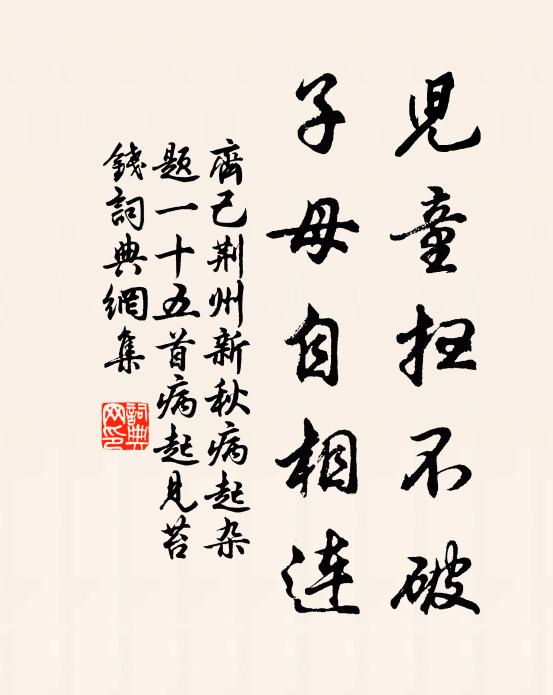 兒童扫不破
子母自相連
齊己荆州新秋病起杂
题一十五首病起見苔
錢詞典網集
詞典网印